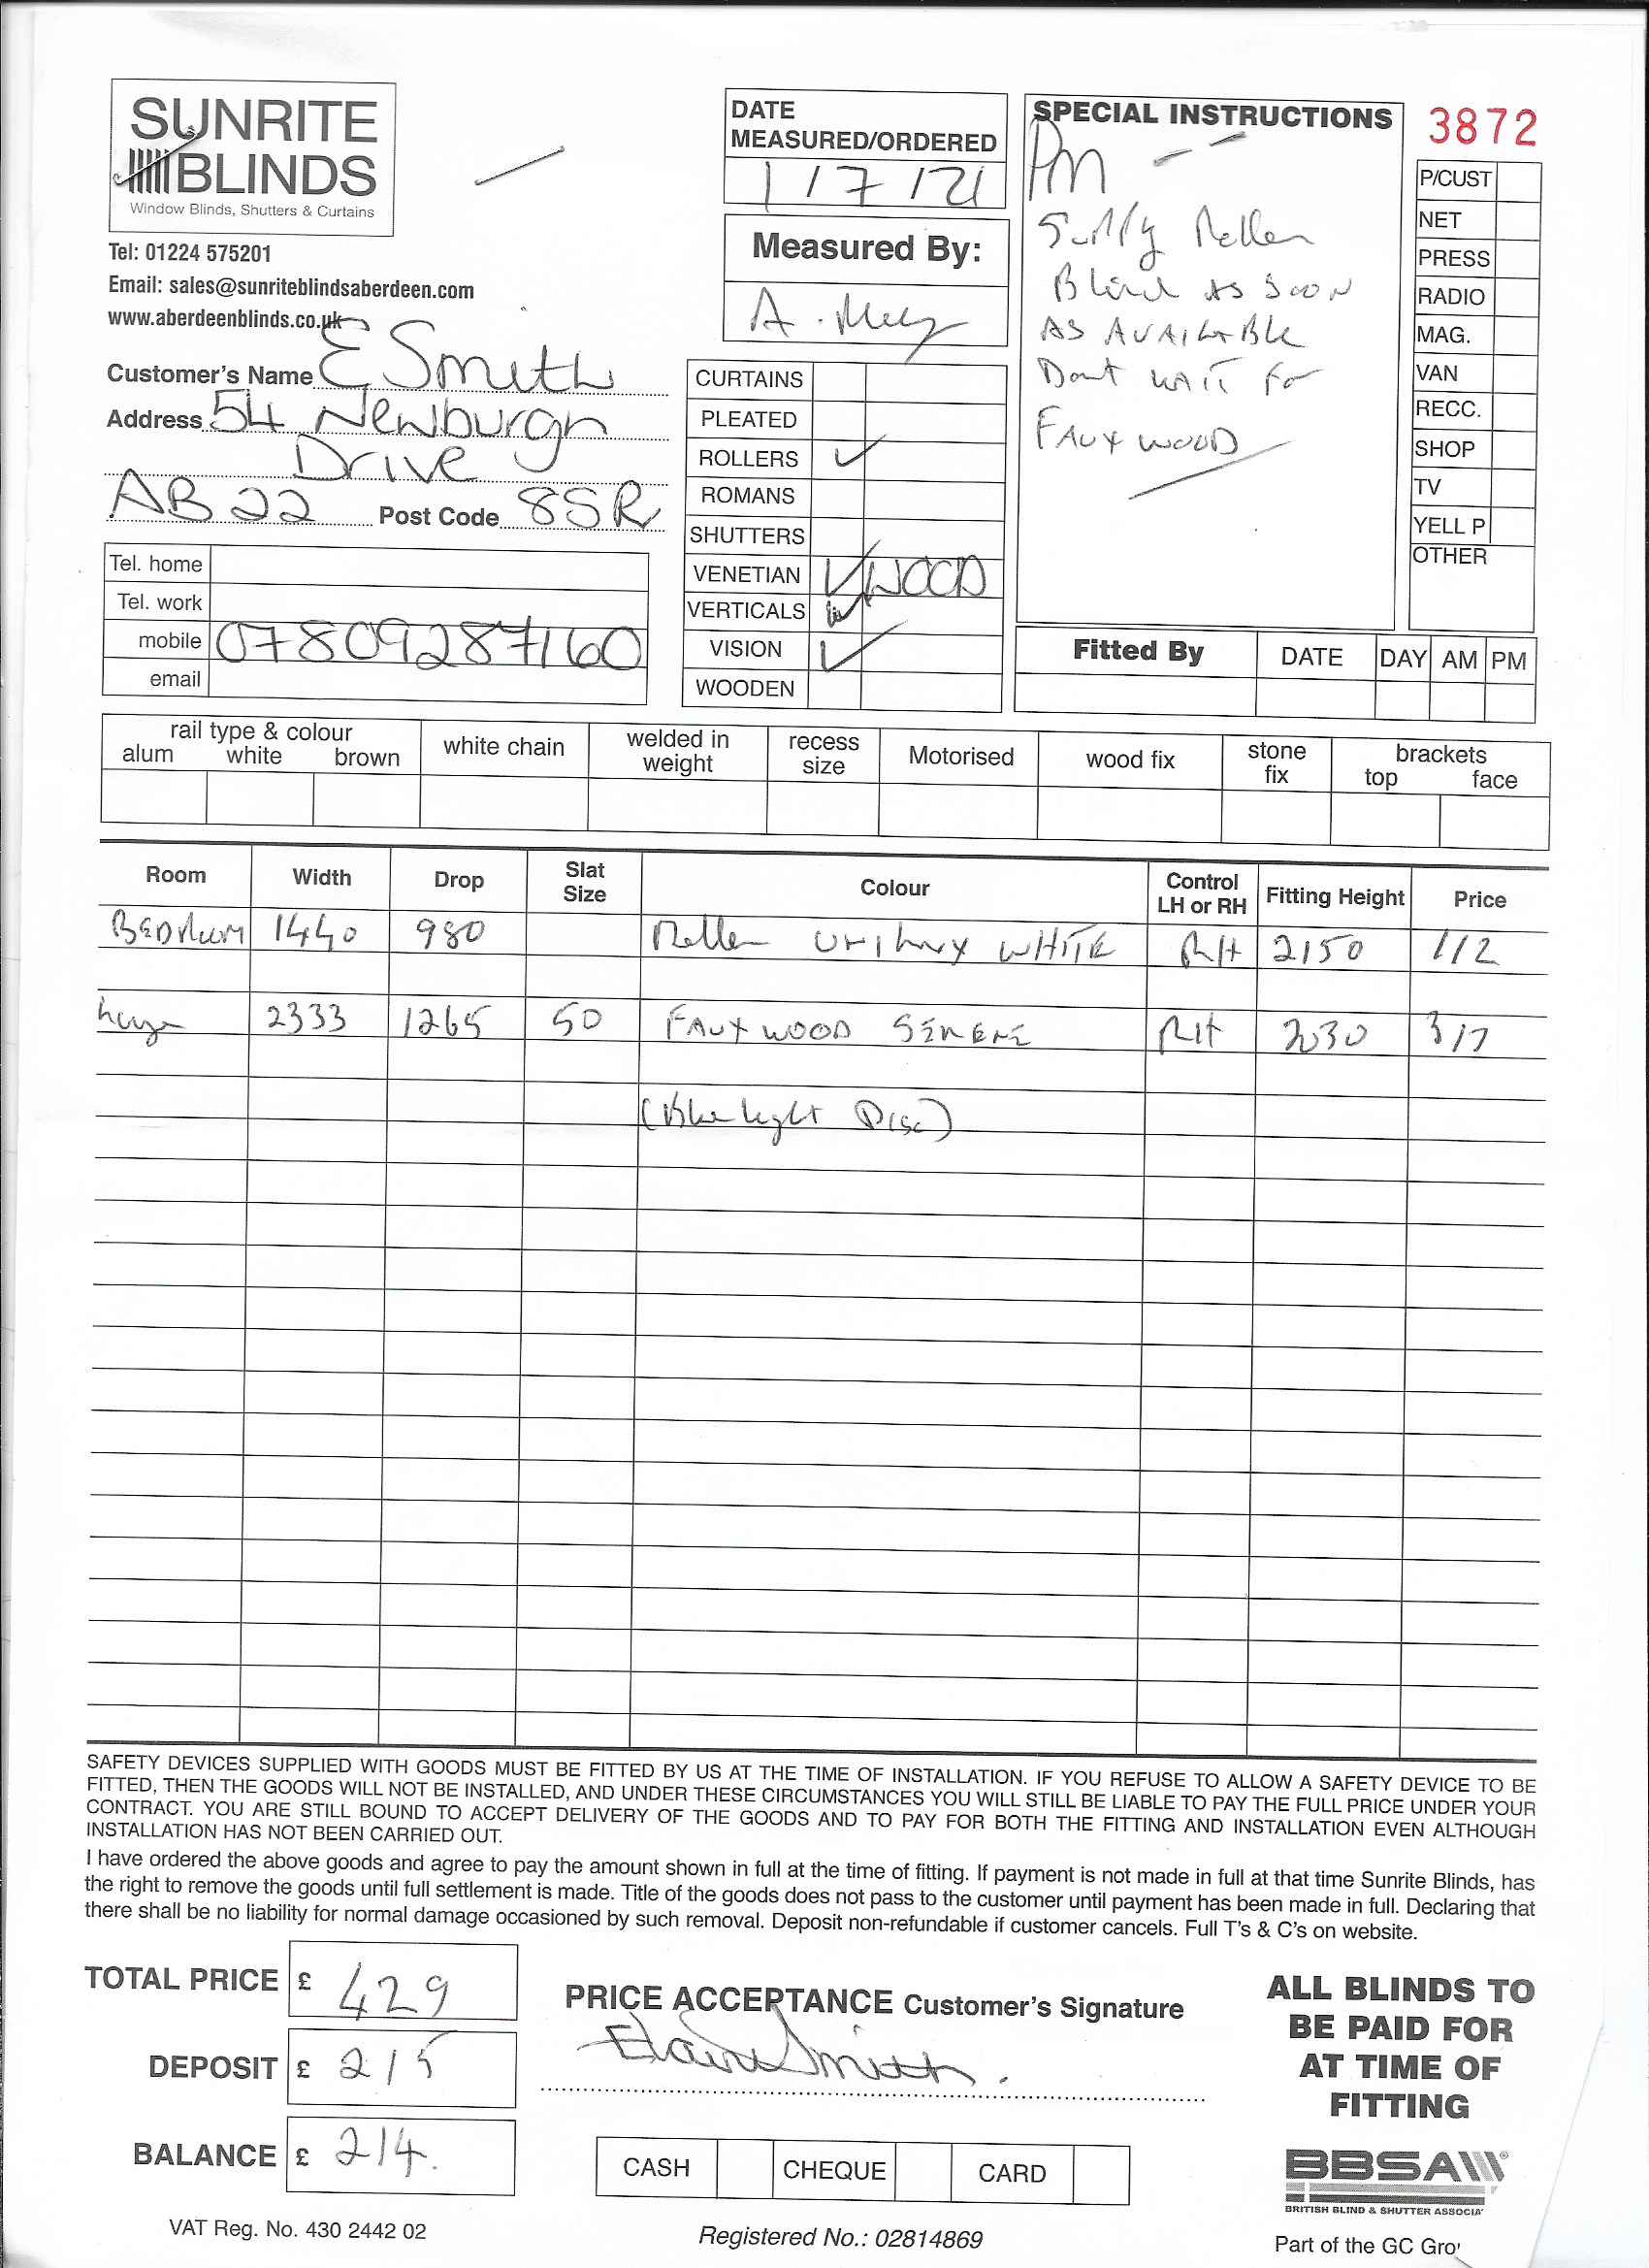 SUNRITE
BLINDS
Window Blinds, Shutters & Curtains
Tel: 01224 575201
Email: sales@sunriteblindsaberdeen.com
www.aberdeenblinds.co.uk
Customer's Name E Smith
Address 54 Newburgh
Drive
AB22 Post Code 8SR
Tel. home
Tel. work
mobile 07809287160
email
DATE
MEASURED/ORDERED
1/7/21
Measured By:
A.
CURTAINS
PLEATED
ROLLERS ✓
ROMANS
SHUTTERS
VENETIAN ✓ WOOD
VERTICALS
VISION ✓
WOODEN
SPECIAL INSTRUCTIONS
PM
Supply Roller
Blind AS SOON
AS AVAILABLE
Dont WAIT For
FAUX WOOD
3872
P/CUST
NET
PRESS
RADIO
MAG.
VAN
RECC.
SHOP
TV
YELL P
OTHER
Fitted By DATE DAY AM PM
rail type & colour
alum white brown
white chain
welded in
weight
recess
size
Motorised
wood fix
stone
fix
brackets
top face
Room Width Drop Slat Size Colour Control LH or RH Fitting Height Price
BEDroom 1440 980 Roller WHITE RH 2150 112
2333 1265 50 FAUX WOOD SERENE RH 2030 317
SAFETY DEVICES SUPPLIED WITH GOODS MUST BE FITTED BY US AT THE TIME OF INSTALLATION. IF YOU REFUSE TO ALLOW A SAFETY DEVICE TO BE
FITTED, THEN THE GOODS WILL NOT BE INSTALLED, AND UNDER THESE CIRCUMSTANCES YOU WILL STILL BE LIABLE TO PAY THE FULL PRICE UNDER YOUR
CONTRACT. YOU ARE STILL BOUND TO ACCEPT DELIVERY OF THE GOODS AND TO PAY FOR BOTH THE FITTING AND INSTALLATION EVEN ALTHOUGH
INSTALLATION HAS NOT BEEN CARRIED OUT.
I have ordered the above goods and agree to pay the amount shown in full at the time of fitting. If payment is not made in full at that time Sunrite Blinds, has
the right to remove the goods until full settlement is made. Title of the goods does not pass to the customer until payment has been made in full. Declaring that
there shall be no liability for normal damage occasioned by such removal. Deposit non-refundable if customer cancels. Full T's & C's on website.
TOTAL PRICE £ 429
DEPOSIT £ 215
BALANCE £ 214.
PRICE ACCEPTANCE Customer's Signature
Elaine Smith.
CASH CHEQUE CARD
ALL BLINDS TO
BE PAID FOR
AT TIME OF
FITTING
BBSA
BRITISH BLIND & SHUTTER ASSOCIA
VAT Reg. No. 430 2442 02
Registered No.: 02814869
Part of the GC Gro